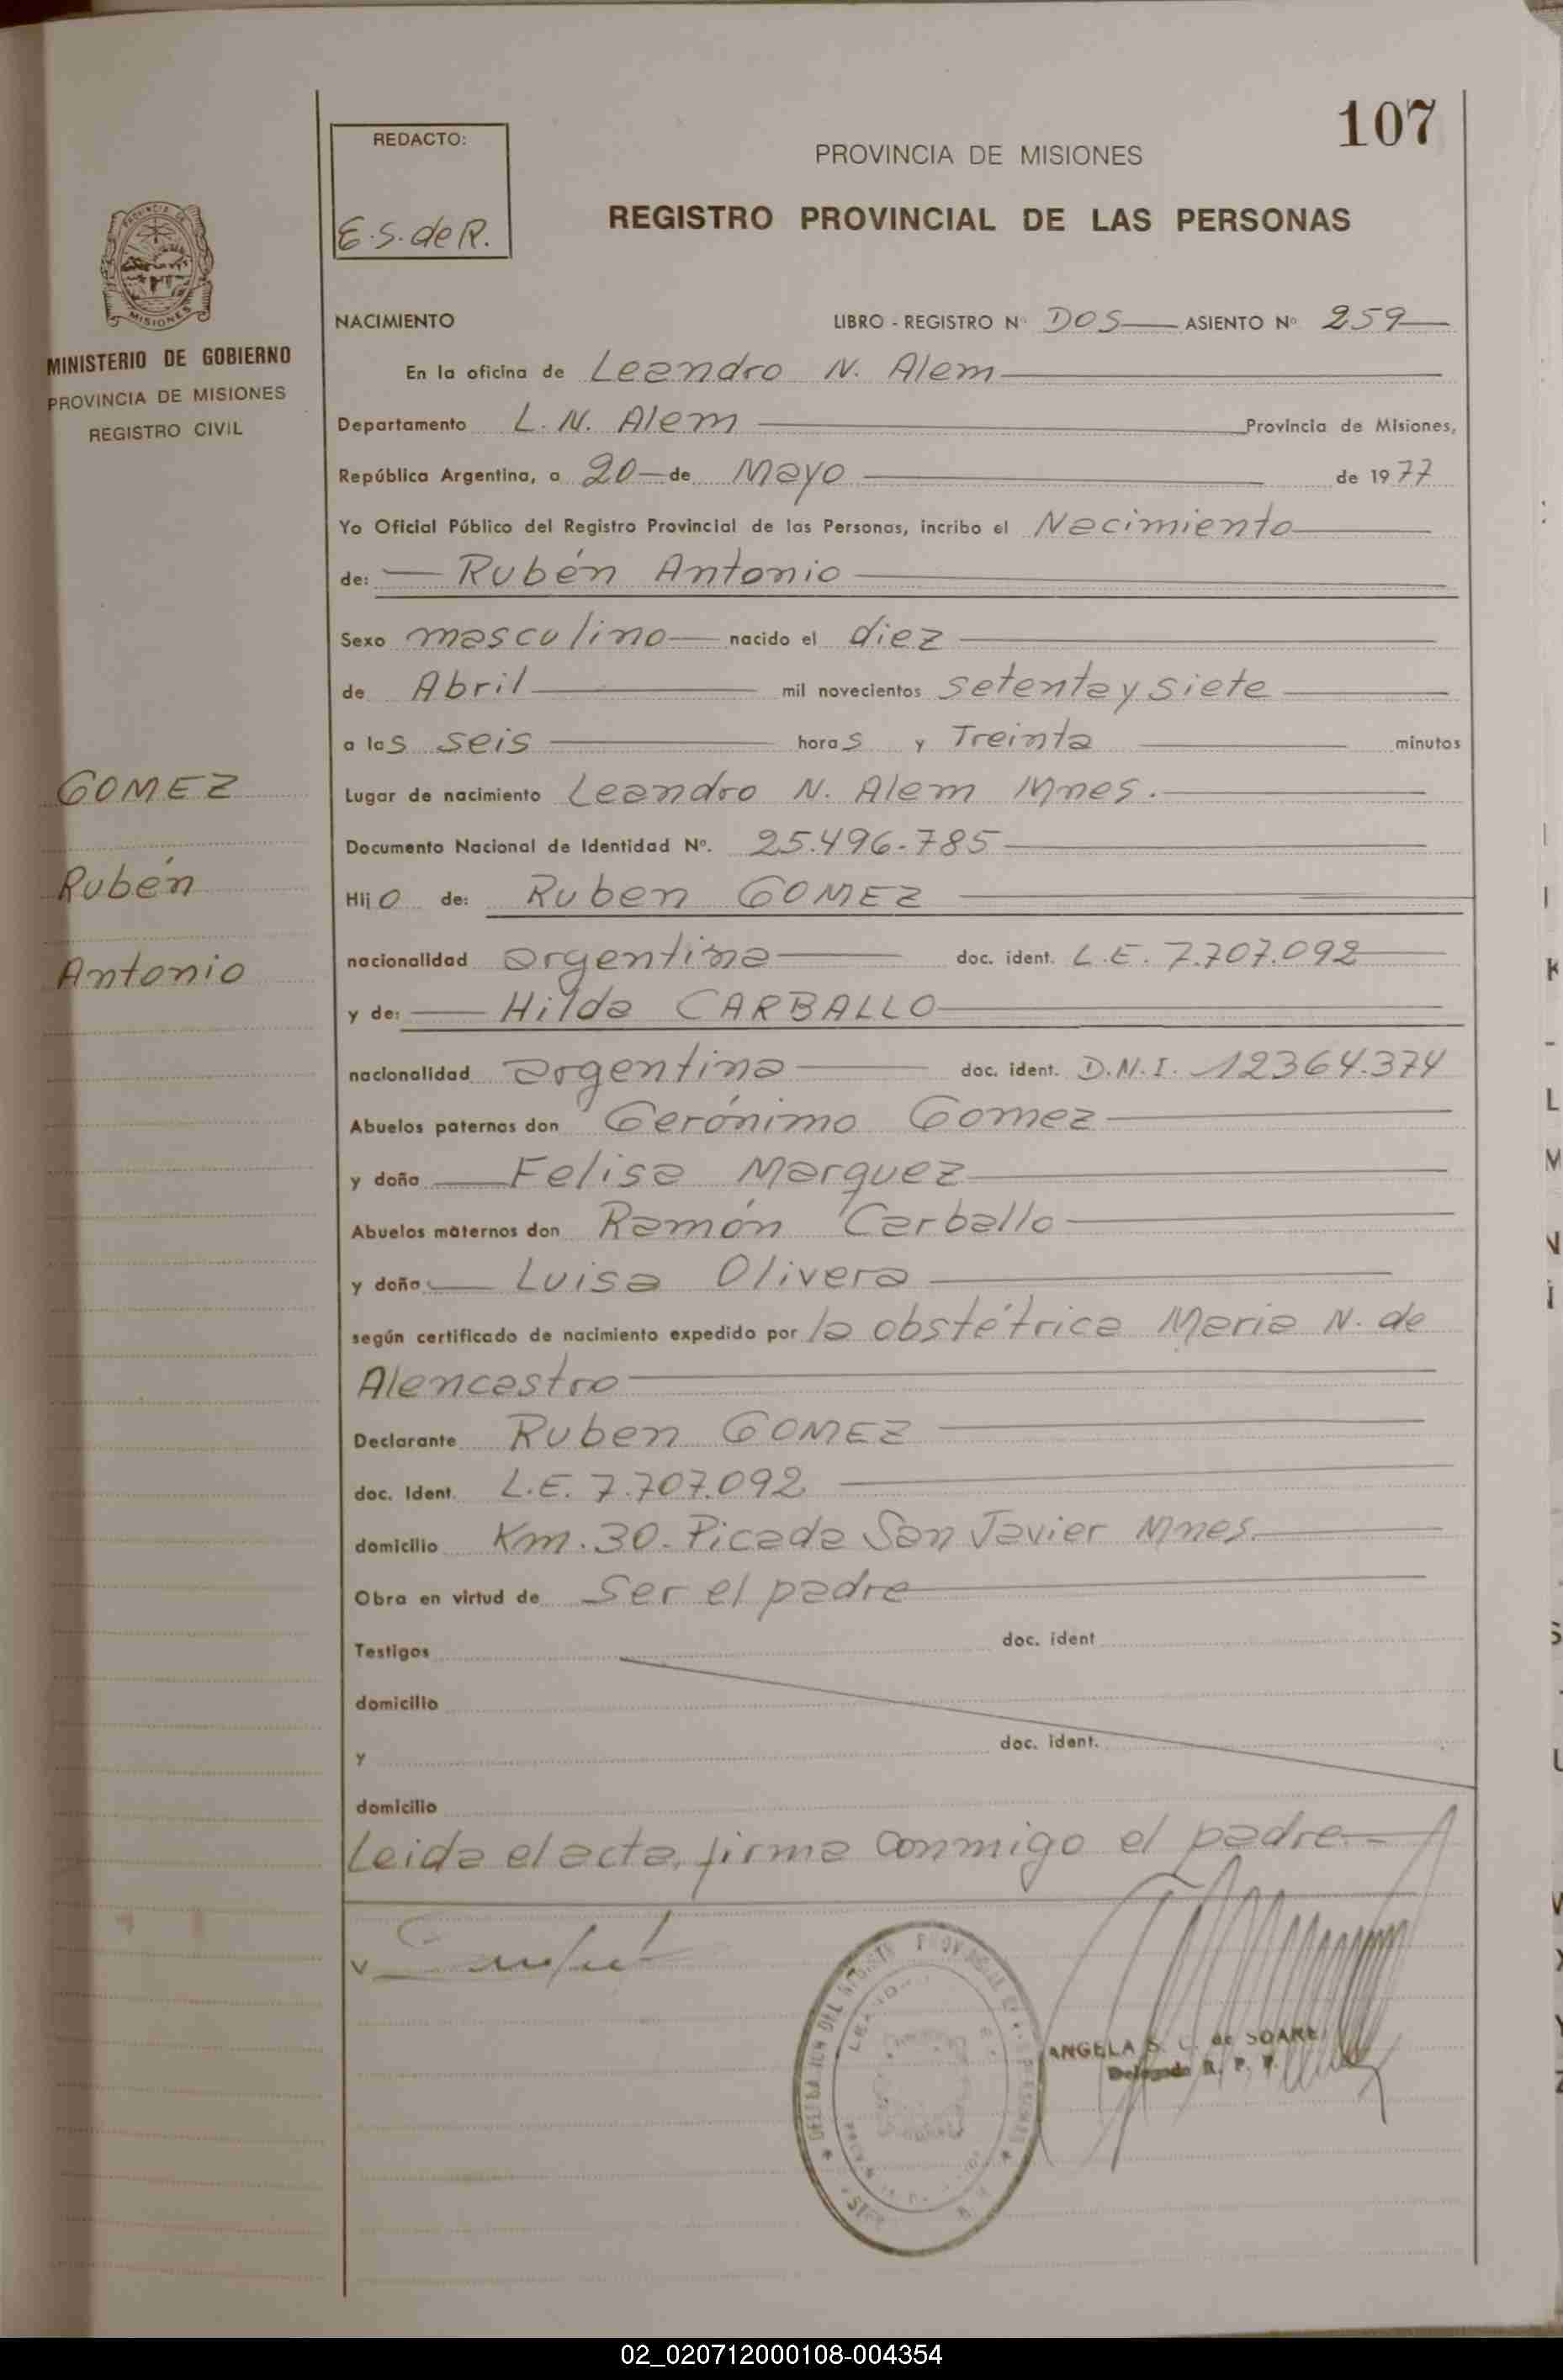 107
REDACTO:
E.S. de R.
PROVINCIA DE MISIONES
REGISTRO PROVINCIAL DE LAS PERSONAS
MISIONES
MINISTERIO DE GOBIERNO
PROVINCIA DE MISIONES
REGISTRO CIVIL
NACIMIENTO LIBRO - REGISTRO Nº DOS ASIENTO Nº 259
En la oficina de Leandro N. Alem
Departamento L. N. Alem Provincia de Misiones,
República Argentina, a 20 de Mayo de 1977
Yo Oficial Público del Registro Provincial de las Personas, incribo el Nacimiento
de: Rubén Antonio
Sexo masculino nacido el diez
de Abril mil novecientos setenta y siete
a las seis horas y Treinta minutos
GOMEZ
Rubén
Antonio
Lugar de nacimiento Leandro N. Alem Mnes.
Documento Nacional de Identidad Nº. 25.496.785
Hijo de: Ruben GOMEZ
nacionalidad argentina doc. ident. L.E. 7.707.092
y de: Hilda CARBALLO
nacionalidad argentina doc. ident. D.N.I. 12364.374
Abuelos paternos don Gerónimo Gomez
y doña Felisa Marquez
Abuelos maternos don Ramón Carballo
y doña Luisa Olivera
según certificado de nacimiento expedido por la obstétrica Maria N. de
Alencastro
Declarante Ruben GOMEZ
doc. Ident. L.E. 7.707.092
domicilio Km. 30. Picada San Javier Mnes.
Obra en virtud de Ser el padre
Testigos doc. ident
domicilio
y doc. ident.
domicilio
Leida el acta, firma conmigo el padre
ANGELA S. de SOARE
R. P. P.
02_020712000108-004354